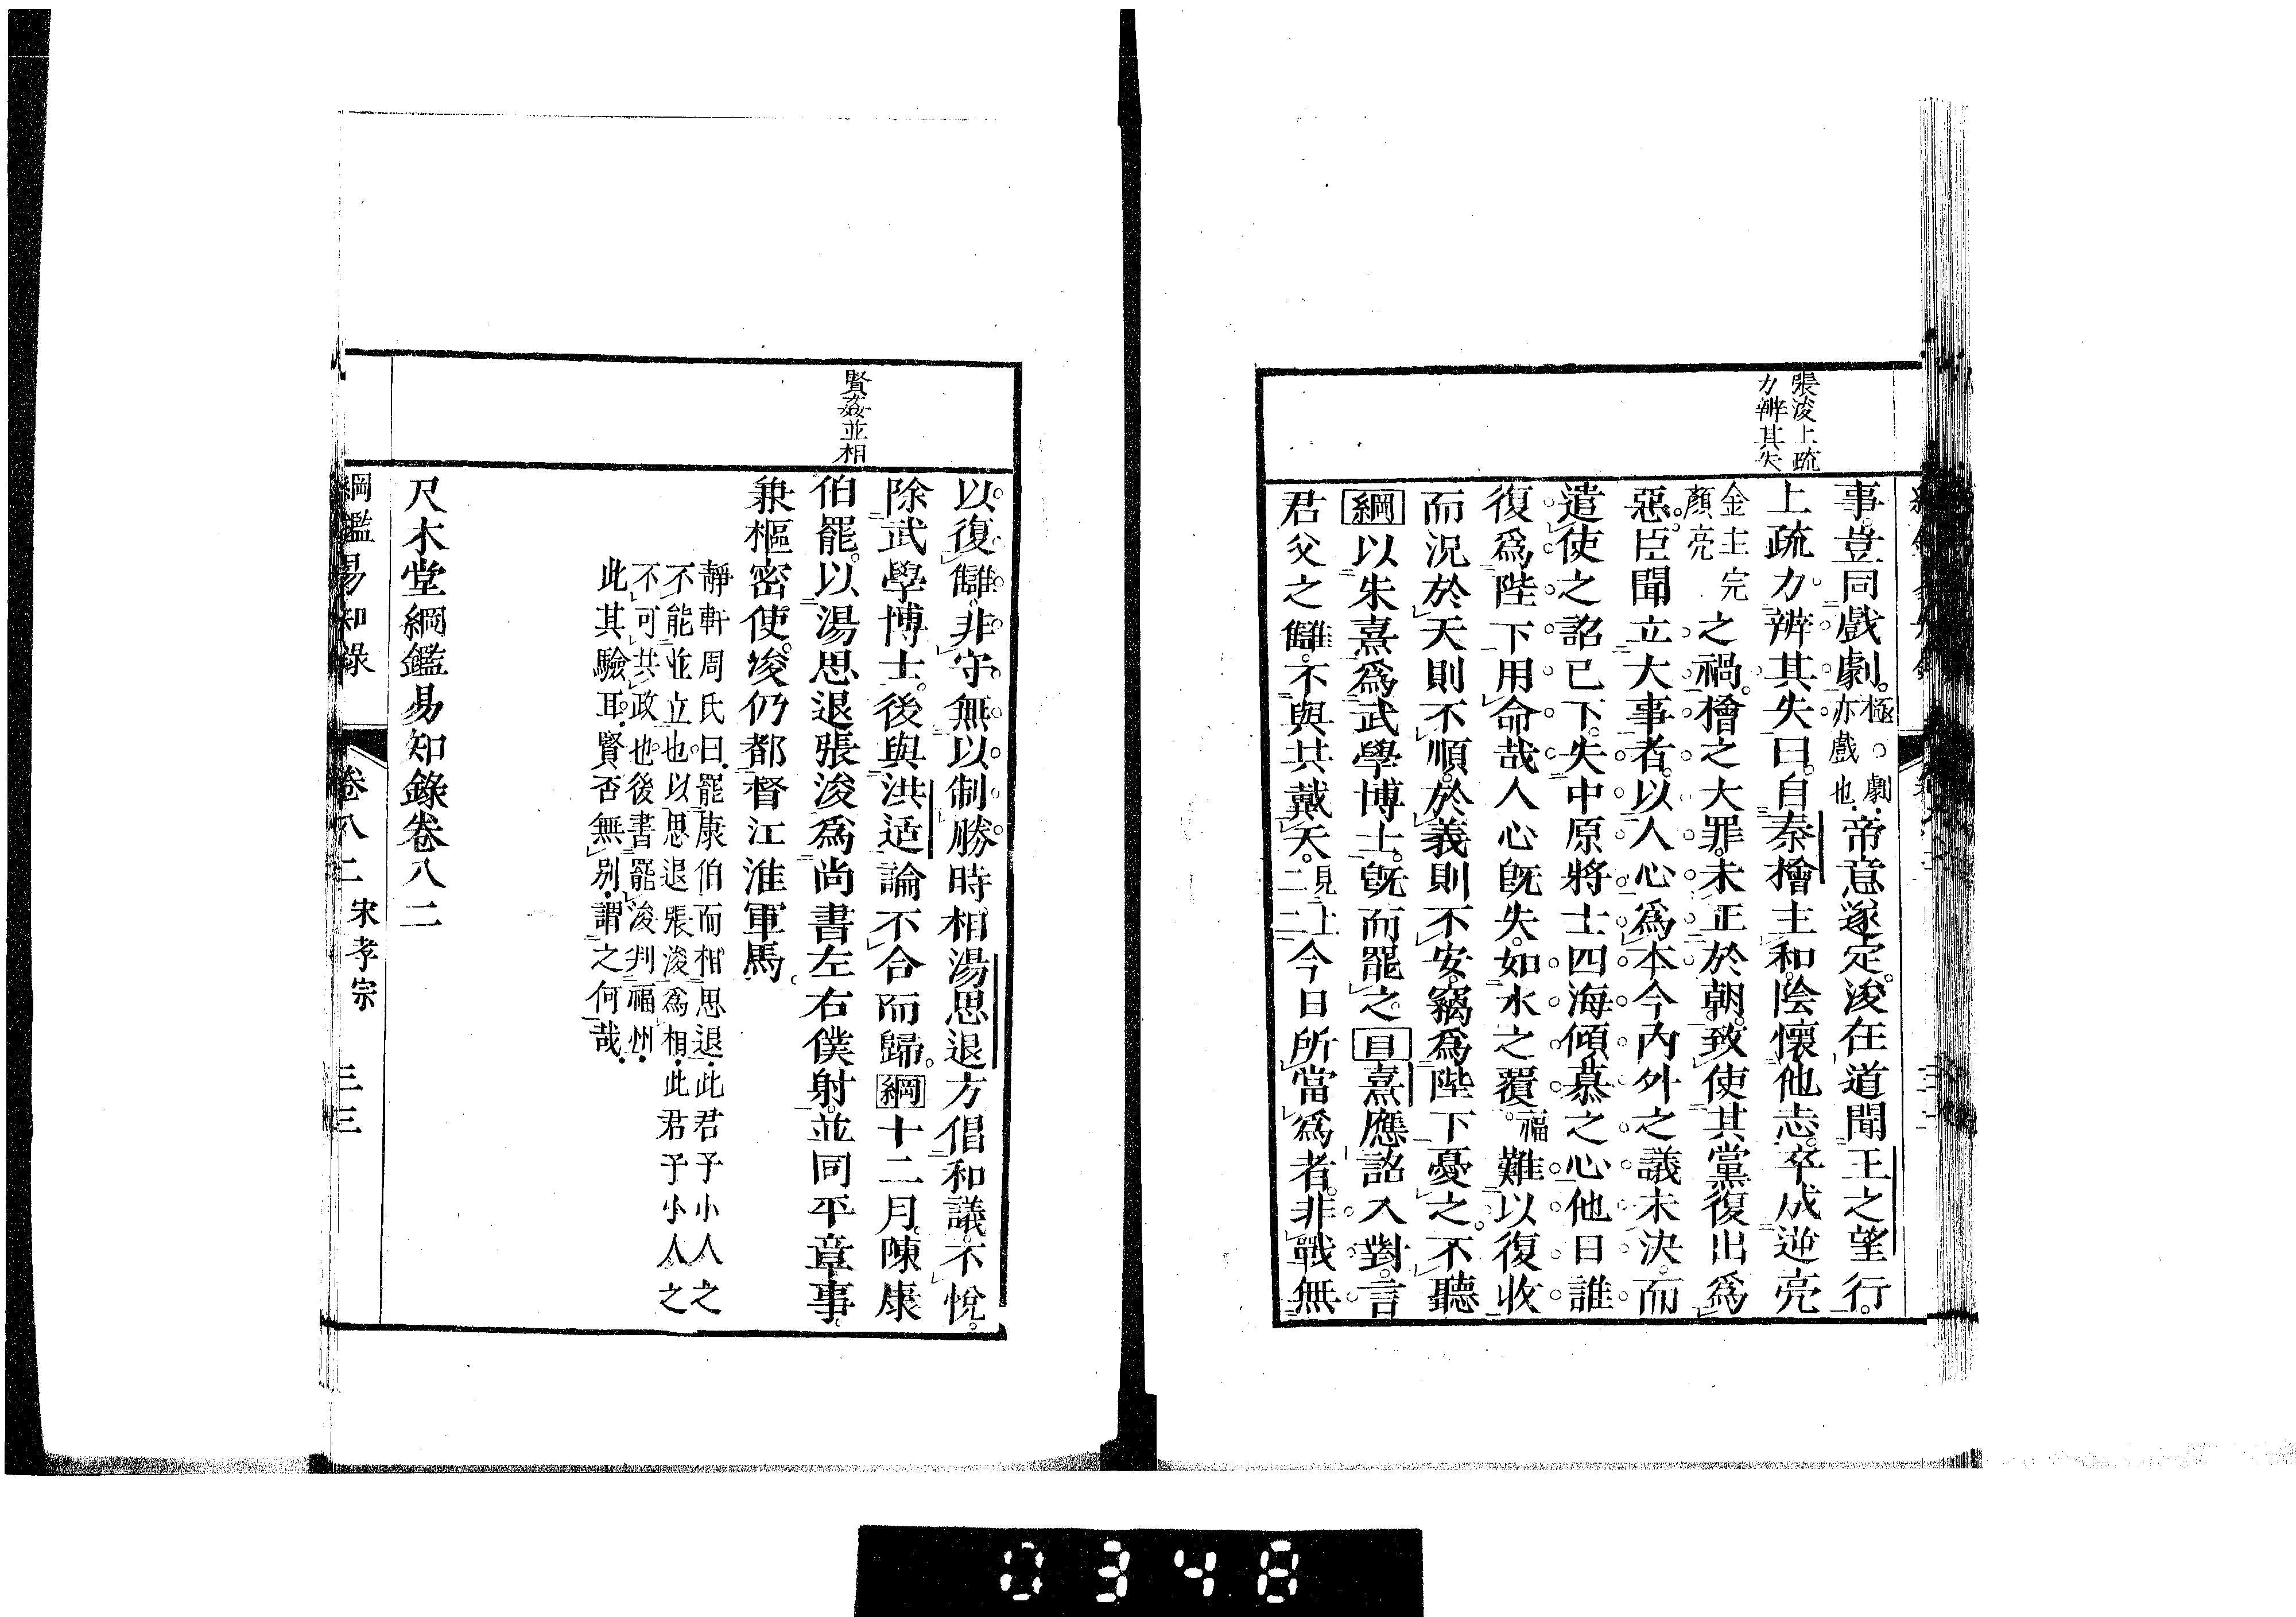 張浚上疏
力辨其失
事豈同戲劇。極。劇亦戲也帝意遂定。浚在道聞王之望行。
上疏力辨其失曰。自秦檜主和。陰懷他志。卒成逆亮
金主完顏亮之禍。檜之大罪。未正於朝。致使其黨復出爲
惡。臣聞立大事者。以人心爲本。今內外之議未決。而
遣使之詔已下。失中原將士四海傾慕之心。他日誰
復爲陛下用命哉。人心旣失。如水之覆。福難以復收
而況於天則不順。於義則不安。竊爲陛下憂之。不聽
綱以朱熹爲武學博士。旣而罷之。目熹應詔入對。言
君父之讎。不與共戴天。見上二二今日所當爲者。非戰無
賢姦並相
以復讎。非守無以制勝。時相湯思退方倡和議。不悅。
除武學博士。後與洪适論不合而歸。綱十二月。陳康
伯罷。以湯思退張浚爲尚書左右僕射。並同平章事。
兼樞密使。浚仍都督江淮軍馬。
靜軒周氏曰。罷康伯而相思退。此君子小人之
不能並立也。以思退張浚爲相。此君子小人之
不可共政也。後書罷浚判福州。
此其驗耳。賢否無別。謂之何哉。
尺木堂綱鑑易知錄卷八二
綱鑑易知錄 卷八二 宋孝宗 三三
0348